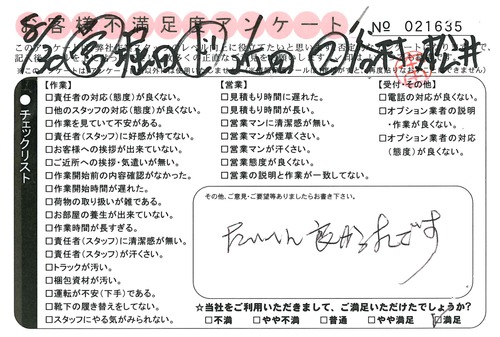 お客様不満足度アンケート
No 021635
チェックリスト
【作業】
□責任者の対応(態度)が良くない。
□他のスタッフの対応(態度)が良くない。
□作業を見ていて不安がある。
□責任者(スタッフ)に好感が持てない。
□お客様への挨拶が出来ていない。
□ご近所への挨拶・気遣いが無い。
□作業開始前の内容確認がなかった。
□作業開始時間が遅れた。
□荷物の取り扱いが雑である。
□お部屋の養生が出来ていない。
□作業時間が長すぎる。
□責任者(スタッフ)に清潔感が無い。
□責任者(スタッフ)が汗くさい。
□トラックが汚い。
□梱包資材が汚い。
□運転が不安(下手)である。
□靴下の履き替えをしてない。
□スタッフにやる気がみられない。
【営業】
□見積もり時間に遅れた。
□見積もり時間が長い。
□営業マンに清潔感が無い。
□営業マンが煙草くさい。
□営業マンが汗くさい。
□営業態度が良くない。
□営業の説明と作業が一致してない。
【受付・その他】
□電話の対応が良くない。
□オプション業者の説明
・作業が良くない。
□オプション業者の対応
(態度)が良くない。
その他、ご意見・ご要望等ありましたらお書き下さい。
たいへん良かったです
☆当社をご利用いただきまして、ご満足いただけたでしょうか?
□不満 □やや不満 □普通 □やや満足 ☑満足